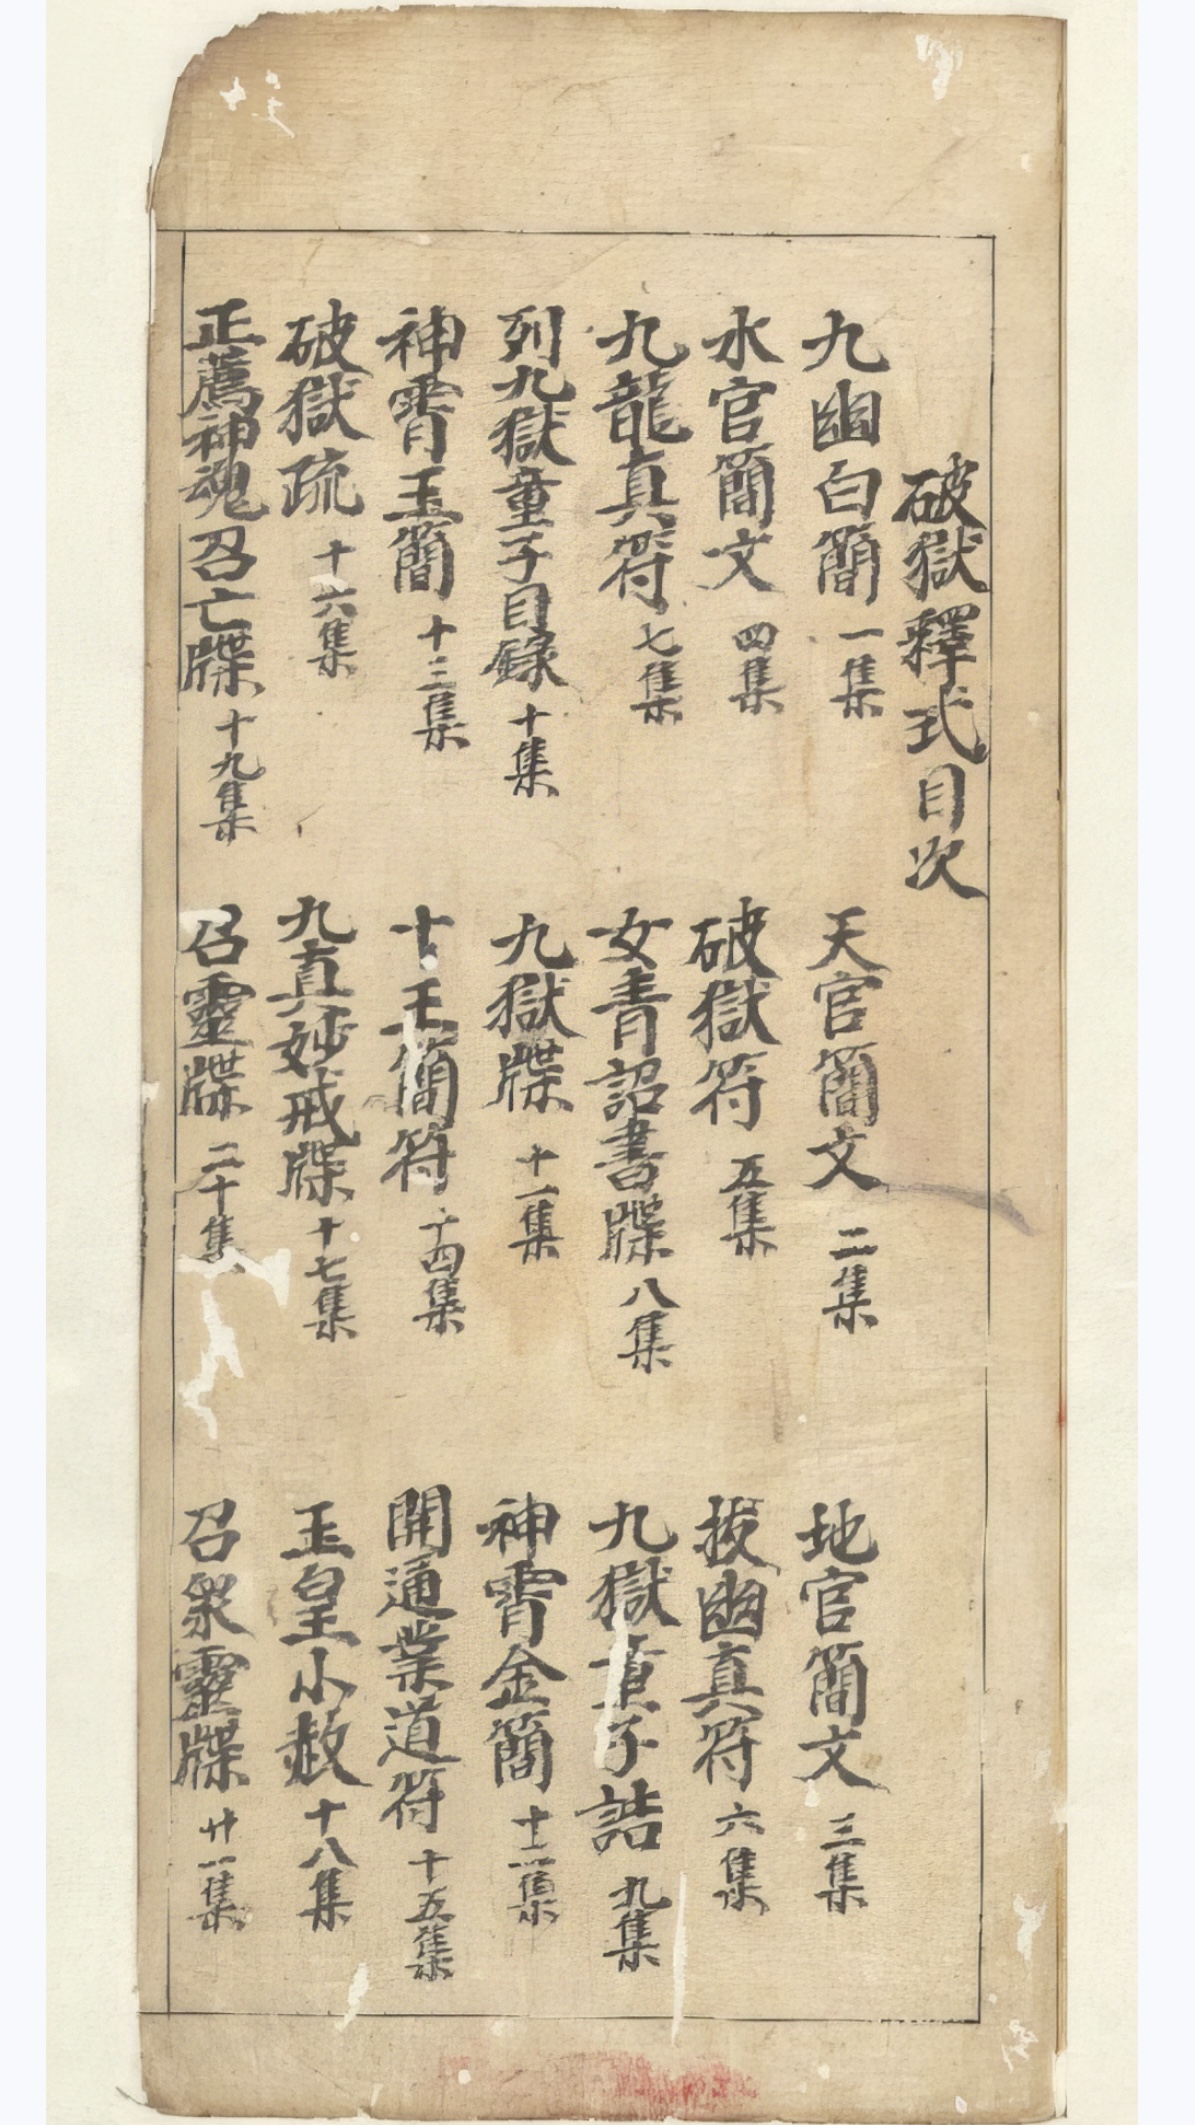 破獄釋式目次
九幽白簡 一集
天官簡文 二集
地官簡文 三集
水官簡文 四集
破獄符 五集
拔幽真符 六集
九龍真符 七集
女青詔書牒 八集
九獄童子誥 九集
列九獄童子目錄 十集
九獄牒 十一集
神霄金簡 十二集
神霄玉簡 十三集
十王簡符 十四集
開通業道符 十五集
破獄疏 十六集
九真妙戒牒 十七集
玉皇小赦 十八集
正薦神魂召亡牒 十九集
召靈牒 二十集
召眾靈牒 廿一集